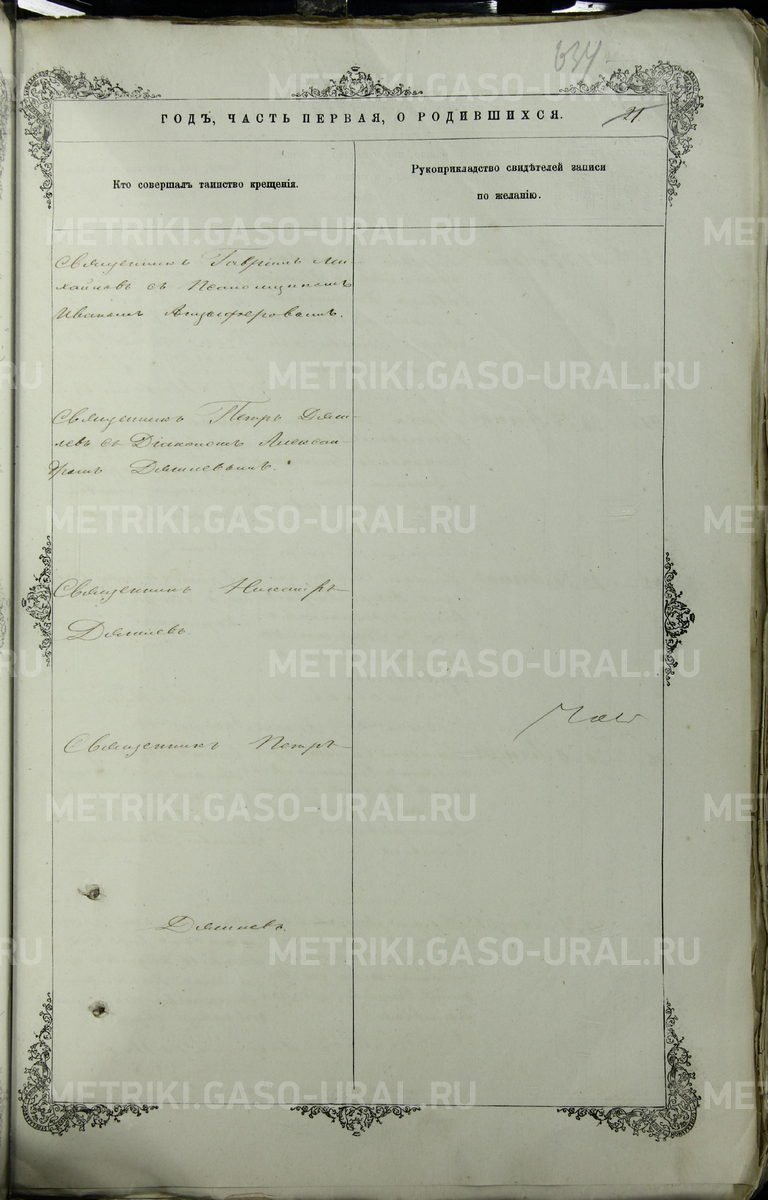 634
ГОДЪ, ЧАСТЬ ПЕРВАЯ, О РОДИВШИХСЯ.
21
Кто совершалъ таинство крещенія.
Рукоприкладство свидѣтелей записи
по желанію.
Священникъ Гавріилъ Ми-
хайловъ съ Псаломщикомъ
Иваномъ Анцыферовымъ.
Священникъ Петръ Дяги-
левъ съ Діакономъ Алексан
дромъ Дягилевымъ.
Священникъ
Дягилевъ
Священникъ Петръ
Дягилевъ
METRIKI.GASO-URAL.RU